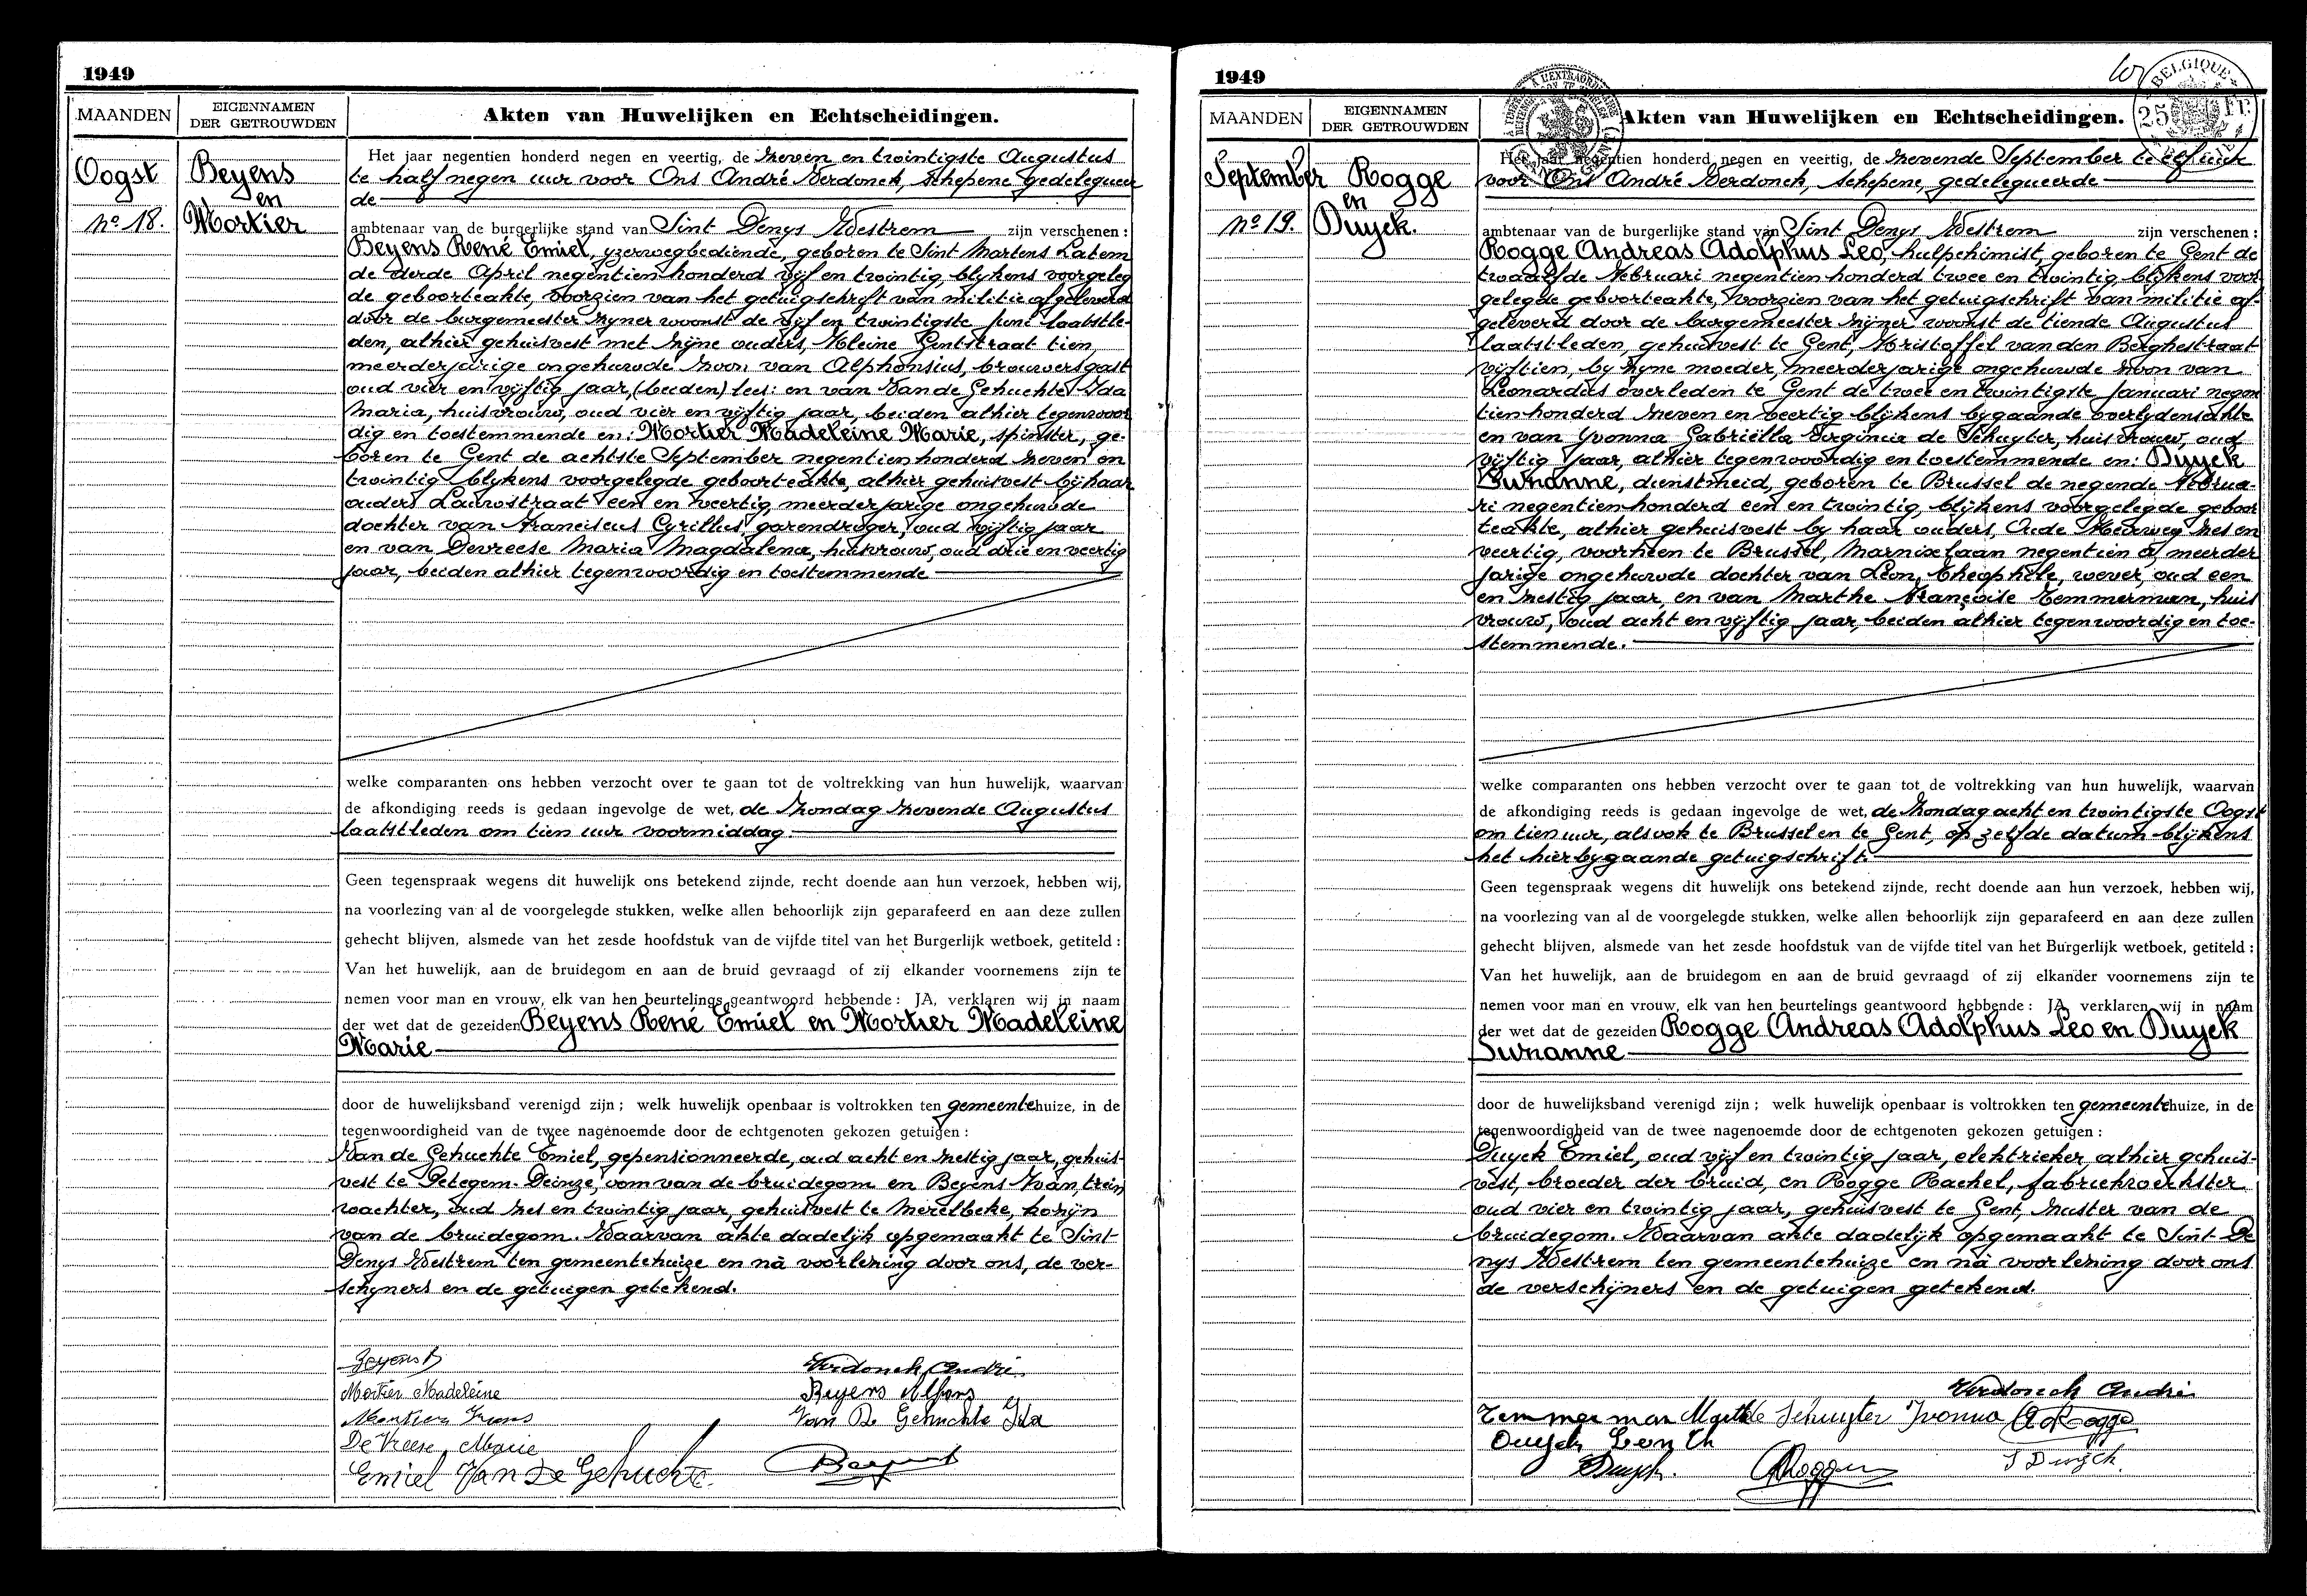 1949
MAANDEN
EIGENNAMEN
DER GETROUWDEN
Akten van Huwelijken en Echtscheidingen.
Oogst
nº 18.
Beyens
en
Mortier
Het jaar negentien honderd negen en veertig, de zeven en twintigste Augustus
te half negen uur voor Ons André Verdonck, schepene gedelegueer
de
ambtenaar van de burgerlijke stand van Sint Denys Westrem zijn verschenen :
Beyens René Emiel, yzerwegbediende, geboren te Sint Martens Latem
de derde April negentien honderd vijf en twintig, blijkens voorgeleg
de geboorteakte, voorzien van het getuigschrift van militie afgeleverd
door de burgemeester zijner woonst de vijf en twintigste juni laatstle-
den, alhier gehuisvest met zijne ouders, Kleine Gentstraat tien,
meerderjarige ongehuwde zoon van Alphonsius, brouwersgast
oud vier en vijftig jaar, (beiden) lees: en van Van de Gehuchte Ida
Maria, huisvrouw, oud vier en vijftig jaar, beiden alhier tegenwoor
dig en toestemmende en: Mortier Madeleine Marie, spinster, ge-
boren te Gent de achtste September negentien honderd zeven en
twintig blijkens voorgelegde geboorteakte, alhier gehuisvest bij haar
ouders Lauwstraat een en veertig, meerderjarige ongehuwde
dochter van Franciscus Cyrillus, garendroger, oud vijftig jaar
en van Devreese Maria Magdalena, huisvrouw, oud drie en veertig
jaar, beiden alhier tegenwoordig en toestemmende
welke comparanten ons hebben verzocht over te gaan tot de voltrekking van hun huwelijk, waarvan
de afkondiging reeds is gedaan ingevolge de wet, de Zondag zevende Augustus
laatstleden om tien uur voormiddag
Geen tegenspraak wegens dit huwelijk ons betekend zijnde, recht doende aan hun verzoek, hebben wij,
na voorlezing van al de voorgelegde stukken, welke allen behoorlijk zijn geparafeerd en aan deze zullen
gehecht blijven, alsmede van het zesde hoofdstuk van de vijfde titel van het Burgerlijk wetboek, getiteld :
Van het huwelijk, aan de bruidegom en aan de bruid gevraagd of zij elkander voornemens zijn te
nemen voor man en vrouw, elk van hen beurtelings geantwoord hebbende : JA, verklaren wij in naam
der wet dat de gezeiden Beyens René Emiel en Mortier Madeleine
Marie
door de huwelijksband verenigd zijn ; welk huwelijk openbaar is voltrokken ten gemeentehuize, in de
tegenwoordigheid van de twee nagenoemde door de echtgenoten gekozen getuigen :
Van de Gehuchte Emiel, gepensionneerde, oud acht en zestig jaar, gehuis-
vest te Petegem-Deinze, oom van de bruidegom en Beyens Ivan, trein
wachter, oud zes en twintig jaar, gehuisvest te Merelbeke, kozijn
van de bruidegom. Waarvan akte dadelijk opgemaakt te Sint-
Denys Westrem ten gemeentehuize en nà voorlezing door ons, de ver-
schijners en de getuigen getekend.
Beyens R
Mortier Madeleine
Mortier Frans
De Vreese Marie
Emiel Van De Gehuchte.
Verdonck André
Beyens Alfons
Van De Gehuchte Ida
1949
BELGIQUE
25 FR.
MAANDEN
EIGENNAMEN
DER GETROUWDEN
Akten van Huwelijken en Echtscheidingen.
September
nº 19.
Rogge
en
Duyck.
Het jaar negentien honderd negen en veertig, de zevende September te elf uur
voor Ons André Verdonck, schepene, gedelegueerde
ambtenaar van de burgerlijke stand van Sint Denys Westrem zijn verschenen :
Rogge Andreas Adolphus Leo, hulpchimist, geboren te Gent de
twaalfde Februari negentien honderd twee en twintig, blijkens voor-
gelegde geboorteakte, voorzien van het getuigschrift van militie af-
geleverd door de burgemeester zijner woonst de tiende Augustus
laatstleden, gehuisvest te Gent, Kristoffel van den Berghestraat
vijftien, by zyne moeder, meerderjarige ongehuwde zoon van
Leonardus overleden te Gent de twee en twintigste Januari negen
tien honderd zeven en veertig blijkens bygaande overlydensakte
en van Yvonna Gabriëlla Virginia de Schuyter, huisvrouw, oud
vijftig jaar, alhier tegenwoordig en toestemmende en: Duyck
Suzanne, dienstmeid, geboren te Brussel de negende Februa-
ri negentien honderd een en twintig, blijkens voorgelegde geboor
teakte, alhier gehuisvest by haar ouders, Oude Heerweg zes en
veertig, voorheen te Brussel, Marnixlaan negentien a, meerder
jarige ongehuwde dochter van Léon, Théophile, wever, oud een
en zestig jaar, en van Marthe Françoise Temmerman, huis
vrouw, oud acht en vijftig jaar, beiden alhier tegenwoordig en toe-
stemmende.
welke comparanten ons hebben verzocht over te gaan tot de voltrekking van hun huwelijk, waarvan
de afkondiging reeds is gedaan ingevolge de wet, de Zondag acht en twintigste Oogst
om tien uur, alsook te Brussel en te Gent, op zelfde datum blijkens
het hierbygaande getuigschrift.
Geen tegenspraak wegens dit huwelijk ons betekend zijnde, recht doende aan hun verzoek, hebben wij,
na voorlezing van al de voorgelegde stukken, welke allen behoorlijk zijn geparafeerd en aan deze zullen
gehecht blijven, alsmede van het zesde hoofdstuk van de vijfde titel van het Burgerlijk wetboek, getiteld :
Van het huwelijk, aan de bruidegom en aan de bruid gevraagd of zij elkander voornemens zijn te
nemen voor man en vrouw, elk van hen beurtelings geantwoord hebbende : JA, verklaren wij in naam
der wet dat de gezeiden Rogge Andreas Adolphus Leo en Duyck
Suzanne
door de huwelijksband verenigd zijn ; welk huwelijk openbaar is voltrokken ten gemeentehuize, in de
tegenwoordigheid van de twee nagenoemde door de echtgenoten gekozen getuigen :
Duyck Emiel, oud vijf en twintig jaar, elektrieker, alhier gehuis-
vest, broeder der bruid, en Rogge Rachel, fabriekwerkster
oud vier en twintig jaar, gehuisvest te Gent, zuster van de
bruidegom. Waarvan akte dadelijk opgemaakt te Sint-De
nys Westrem ten gemeentehuize en nà voorlezing door ons
de verschijners en de getuigen getekend.
Verdonck André
Temmerman Marthe
de Schuyter Ivonna
A Rogge
Duyck Leon Th
Duyck.
R Rogge
S Duyck